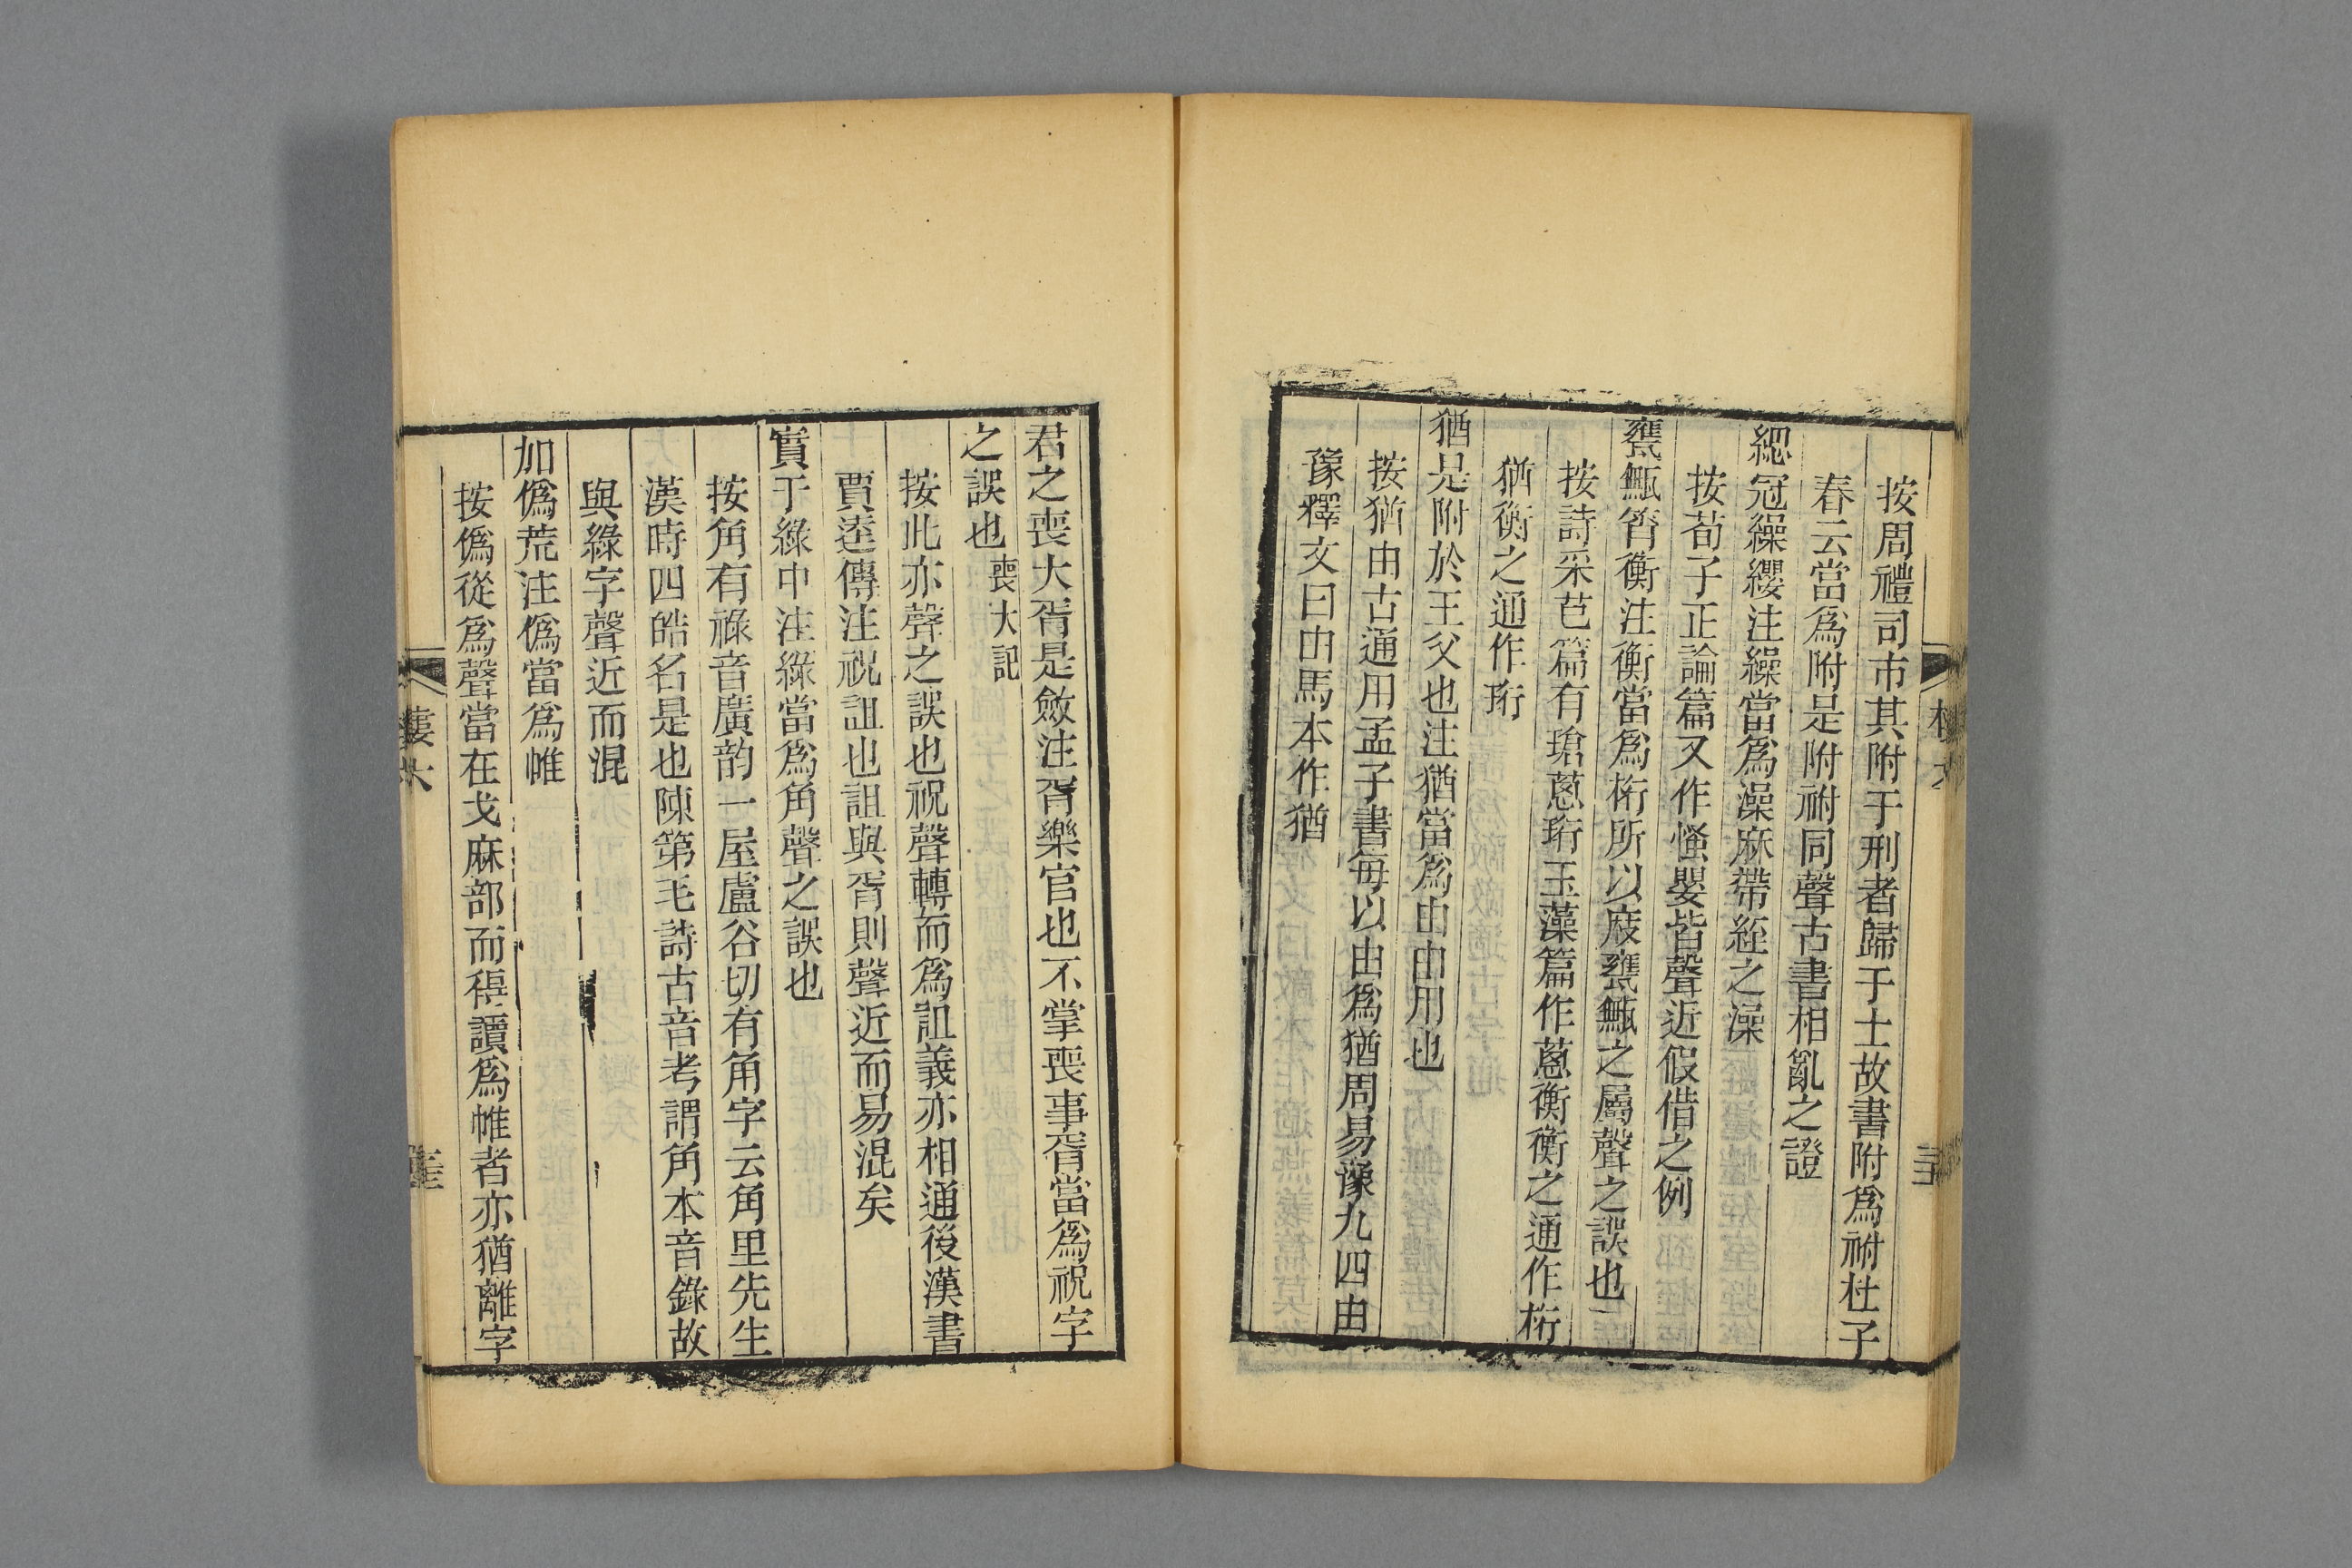 按周禮司市其附于刑者歸于士故書附爲祔杜子
春云當爲附是附祔同聲古書相亂之證
緦冠繰纓注繰當爲澡麻帶絰之澡
按荀子正論篇又作慅嬰皆聲近假借之例
甕甒筲衡注衡當爲桁所以庪甕甒之屬聲之誤也
按詩采芑篇有瑲蔥珩玉藻篇作蔥衡衡之通作桁
猶衡之通作珩
猶是附於王父也注猶當爲由由用也
按猶由古通用孟子書每以由爲猶周易豫九四由
豫釋文曰由馬本作猶
君之喪大胥是斂注胥樂官也不掌喪事胥當爲祝字
之誤也喪大記
按此亦聲之誤也祝聲轉而爲詛義亦相通後漢書
賈逵傳注祝詛也詛與胥則聲近而易混矣
實于綠中注綠當爲角聲之誤也
按角有祿音廣韵一屋盧谷切有角字云角里先生
漢時四皓名是也陳第毛詩古音考謂角本音錄故
與綠字聲近而混
加僞荒注僞當爲帷
按僞從爲聲當在戈麻部而得讀爲帷者亦猶離字